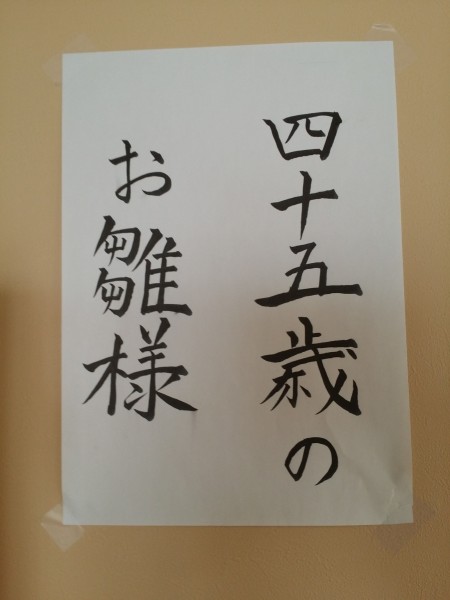 四十五歳の
お雛様